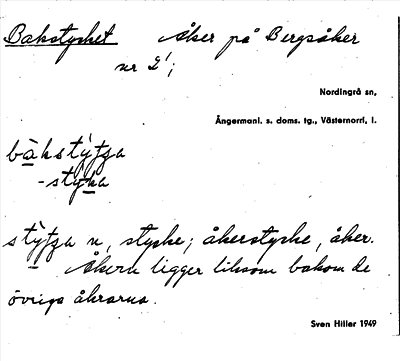 Bakstycket åker på Bergsåker
nr 2¹;
Nordingrå sn,
Ångermanl. s. doms. tg., Västernorrl. l.
bàkstýtʒa
-stýka
stýtʒa n, stycke; åkerstycke, åker.
Åkern ligger liksom bakom de
övriga åkrarna.
Sven Hiller 1949